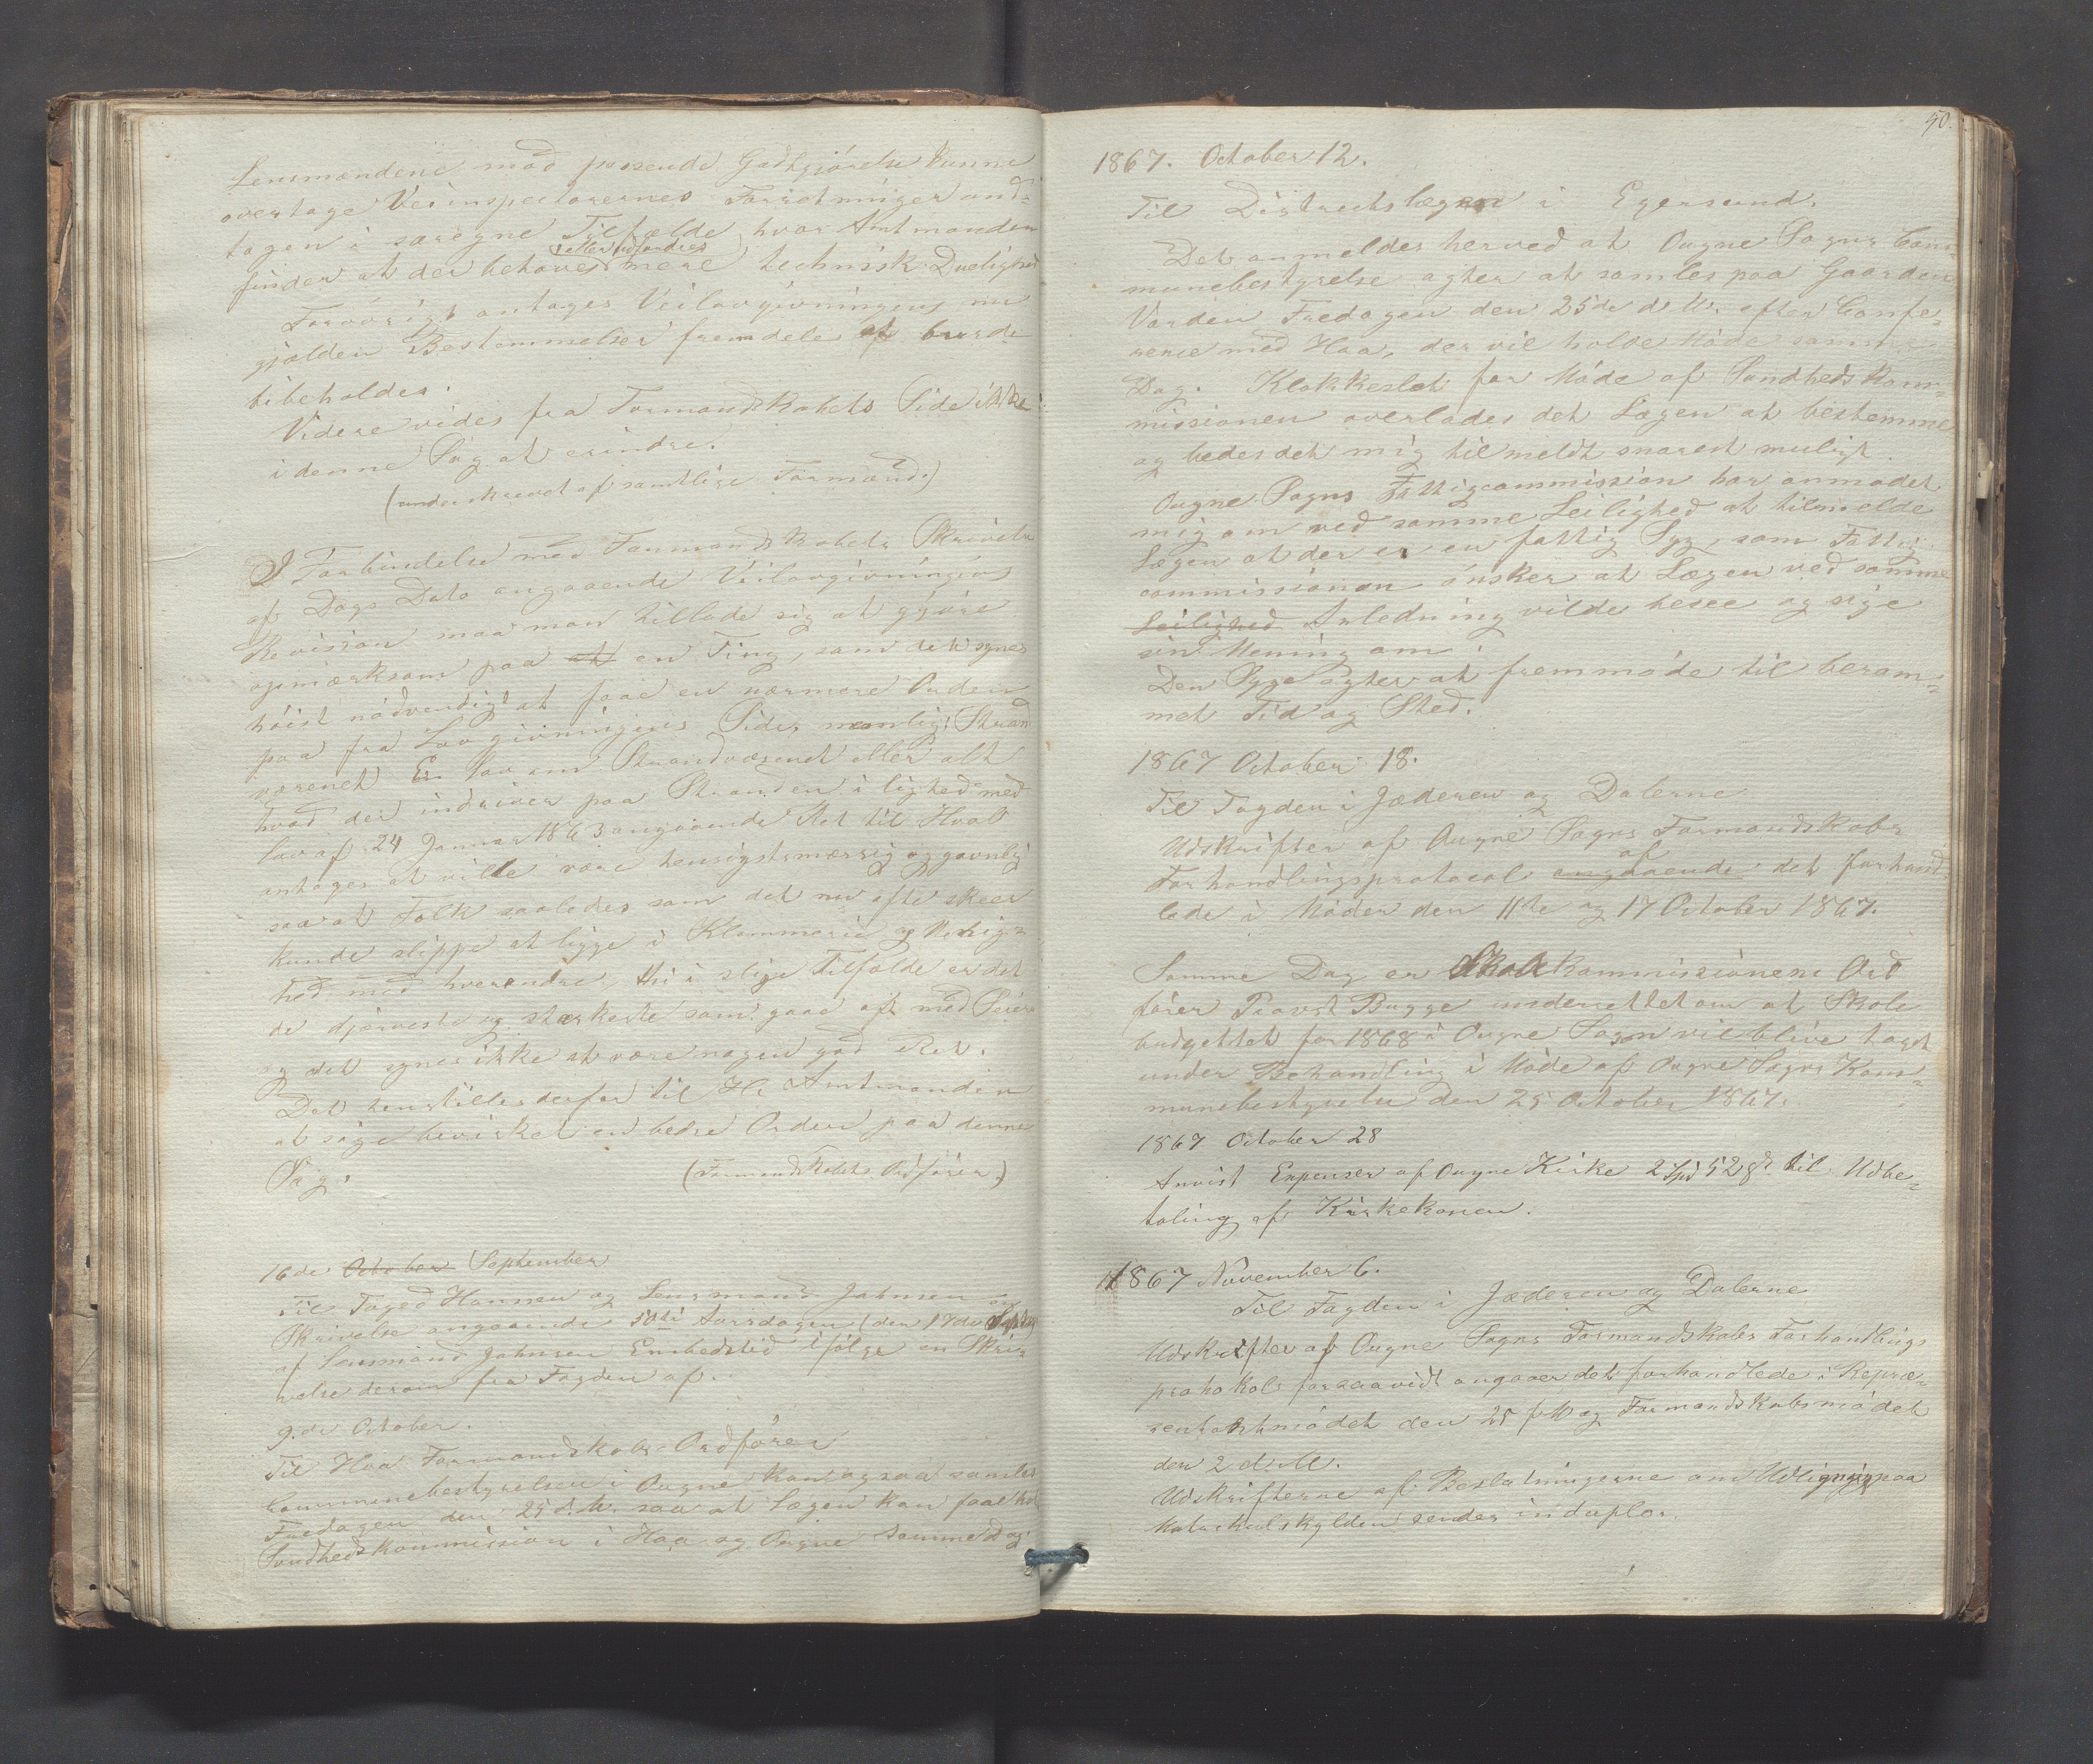 Lensmændene mod passende Godtgjörelse kunne
overtage Veiinspectorernes Forretninger und-
tagen i særegne Tilfælde, hvor Amtmanden
eller udfordres
finder at der behöves mere technisk Duelighed
Forövrigt antages Veilovgivningens nu
gjælden Bestemmelser fremdeles at burde
bibeholdes.
Videre vides fra Formandskabets Side ikke
i denne Sag at erindre.
(underskrevet af samtlige Formænd.)
I Forbindelse med Formandskabets Skrivelse
af Dags Dato angaaende Veilovgivningens
Revision maa man tillade sig at gjöre
opmærksom paa at en Ting, som det synes
höist nödvendigt at faae en nærmere Orden
paa fra Lovgivningens Side, nemlig: Strand
væsenet En Lov om Strandvæsenet eller alt
hvad der inddriver paa Stranden i lighed med
Lov af 24 Januar 1863 angaaende Ret til Hval
antages at ville være hensigtsmæssig og gavnlig
saa at Folk saaledes som det nu ofte skeer
kunde slippe at ligge i Klammerie og Uenig-
hed med hverandre, thi i slige Tilfælde er det
de djærveste og stærkeste som gaae af med Seier
og det synes ikke at være nogen god Ret.
Det henstilles derfor til Hr Amtmanden
at söge bevirket en bedre Orden paa denne
Sag.
(Formandskabets Ordförer.)
16de October September
Til Foged Hansen og Lensmand Jahnsen
Skrivelse angaaende Torsdagen (den 17de Septbr)
af Lensmand Jahnsen Embedstid ifölge en Skri-
velse derom fra Fogden af.
9de October.
Til Haa Formandskabs Ordförer
Communebestyrelsen i Ougne kan ogsaa samles
Fredagen den 25 d.M. saa at Lægen kan faae hol
Sundhedskommission i Haa og Ougne samme Dag
50.
1867. October 12.
Til Districtslægen i Egersund.
Det anmeldes herved at Ougne Sogns Com-
munebestyrelse agter at samles paa Gaarden
Varden Fredagen den 25de d.M. efter Confe-
rence med Haa, der vil holde Möde samme
Dag. Klokkeslet for Möde af Sundhedskom-
missionen overlades det Lægen at bestemme
og bedes det mig tilmeldt snarest muligt.
Ougne Sogns Fattigcommission har anmodet
mig om ved samme Leilighed at tilmelde
Lægen at der er en fattig Syg, som Fattig
commissionen önsker at Lægen ved samme
Leilighed Anledning vilde besee og sige
sin Mening om.
Den Syge agter at fremmöde til beram-
met Tid og Sted.
1867 October 18.
Til Fogden i Jæderen og Dalerne
Udskrifter af Ougne Sogns Formandskabs
af
Forhandlingsprotocol angaaende det forhand-
lede i Möder den 11te og 17 October 1867.
Samme Dag er Skolekommissionens Ord
förer Provst Bugge underrettet om at Skole
budgettet for 1868 i Ougne Sogn vil blive taget
under Behandling i Möde af Ougne Sogns Kom-
munebestyrelse den 25 October 1867.
1867 October 28
Anvist Expenser af Ougne Kirke 2 Spd 52 s. til Udbe-
taling af Kirkekonen.
1867 November 6.
Til Fogden i Jæderen og Dalerne
Udskrifter af Ougne Sogns Formandskabs Forhandlings
protokol forsaavidt angaaer det forhandlede i Repræ-
sentantmödet den 25 f.M og Formandskabsmödet
den 2 d.M.
Udskrifterne af Beslutningerne om Udligning paa
Matrikulskylden sendes in duplo.